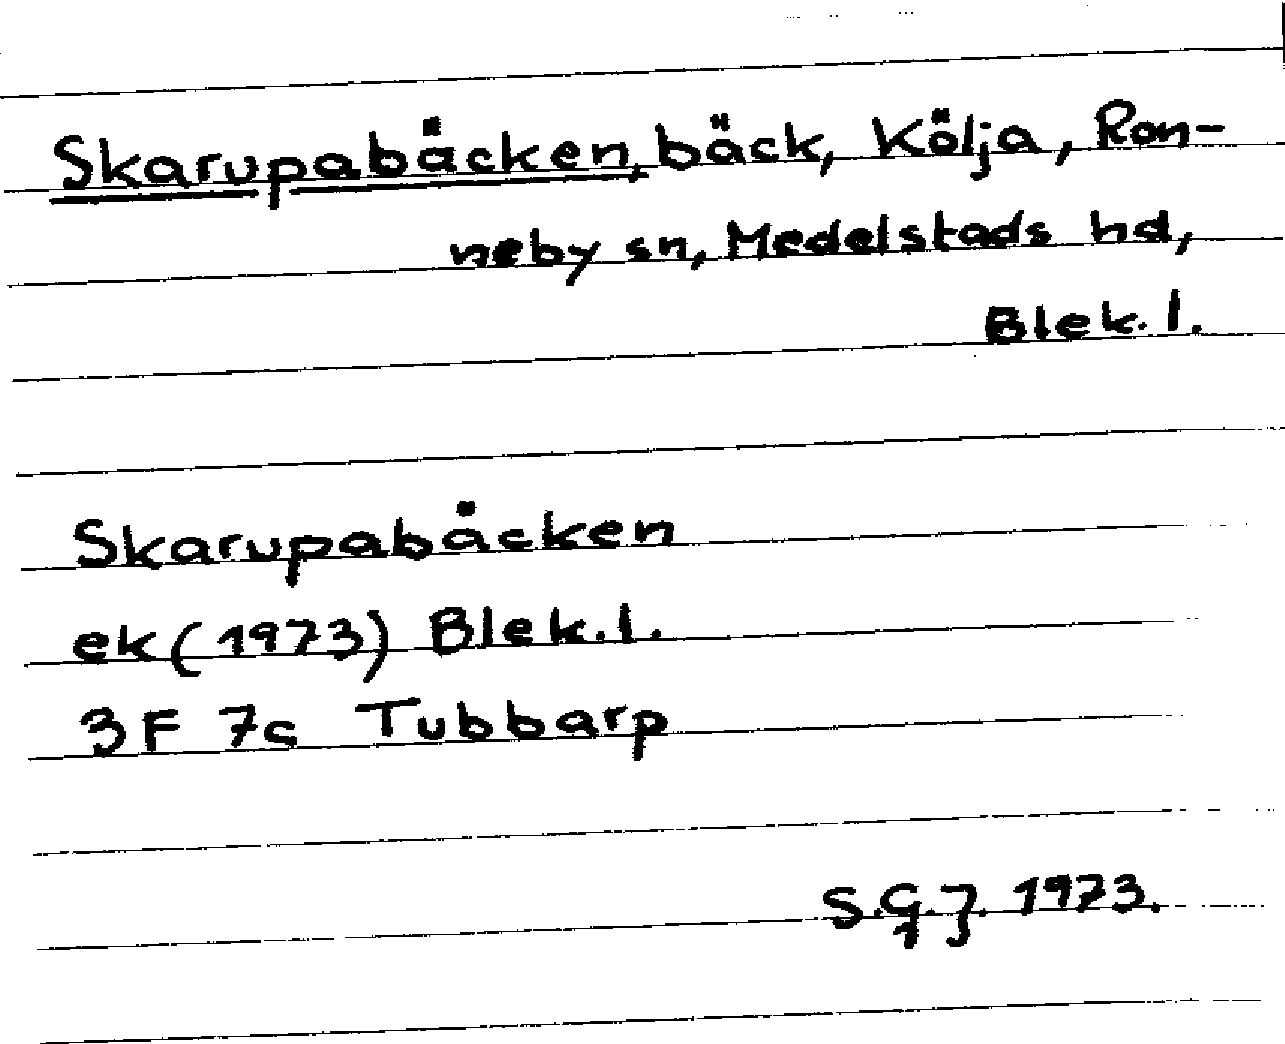 Skarupabäcken, bäck, Kölja, Ron-
neby sn, Medelstads hd,
Blek. l.
Skarupabäcken
ek (1973) Blek. l.
3F 7c Tubbarp
S.G.J. 1973.